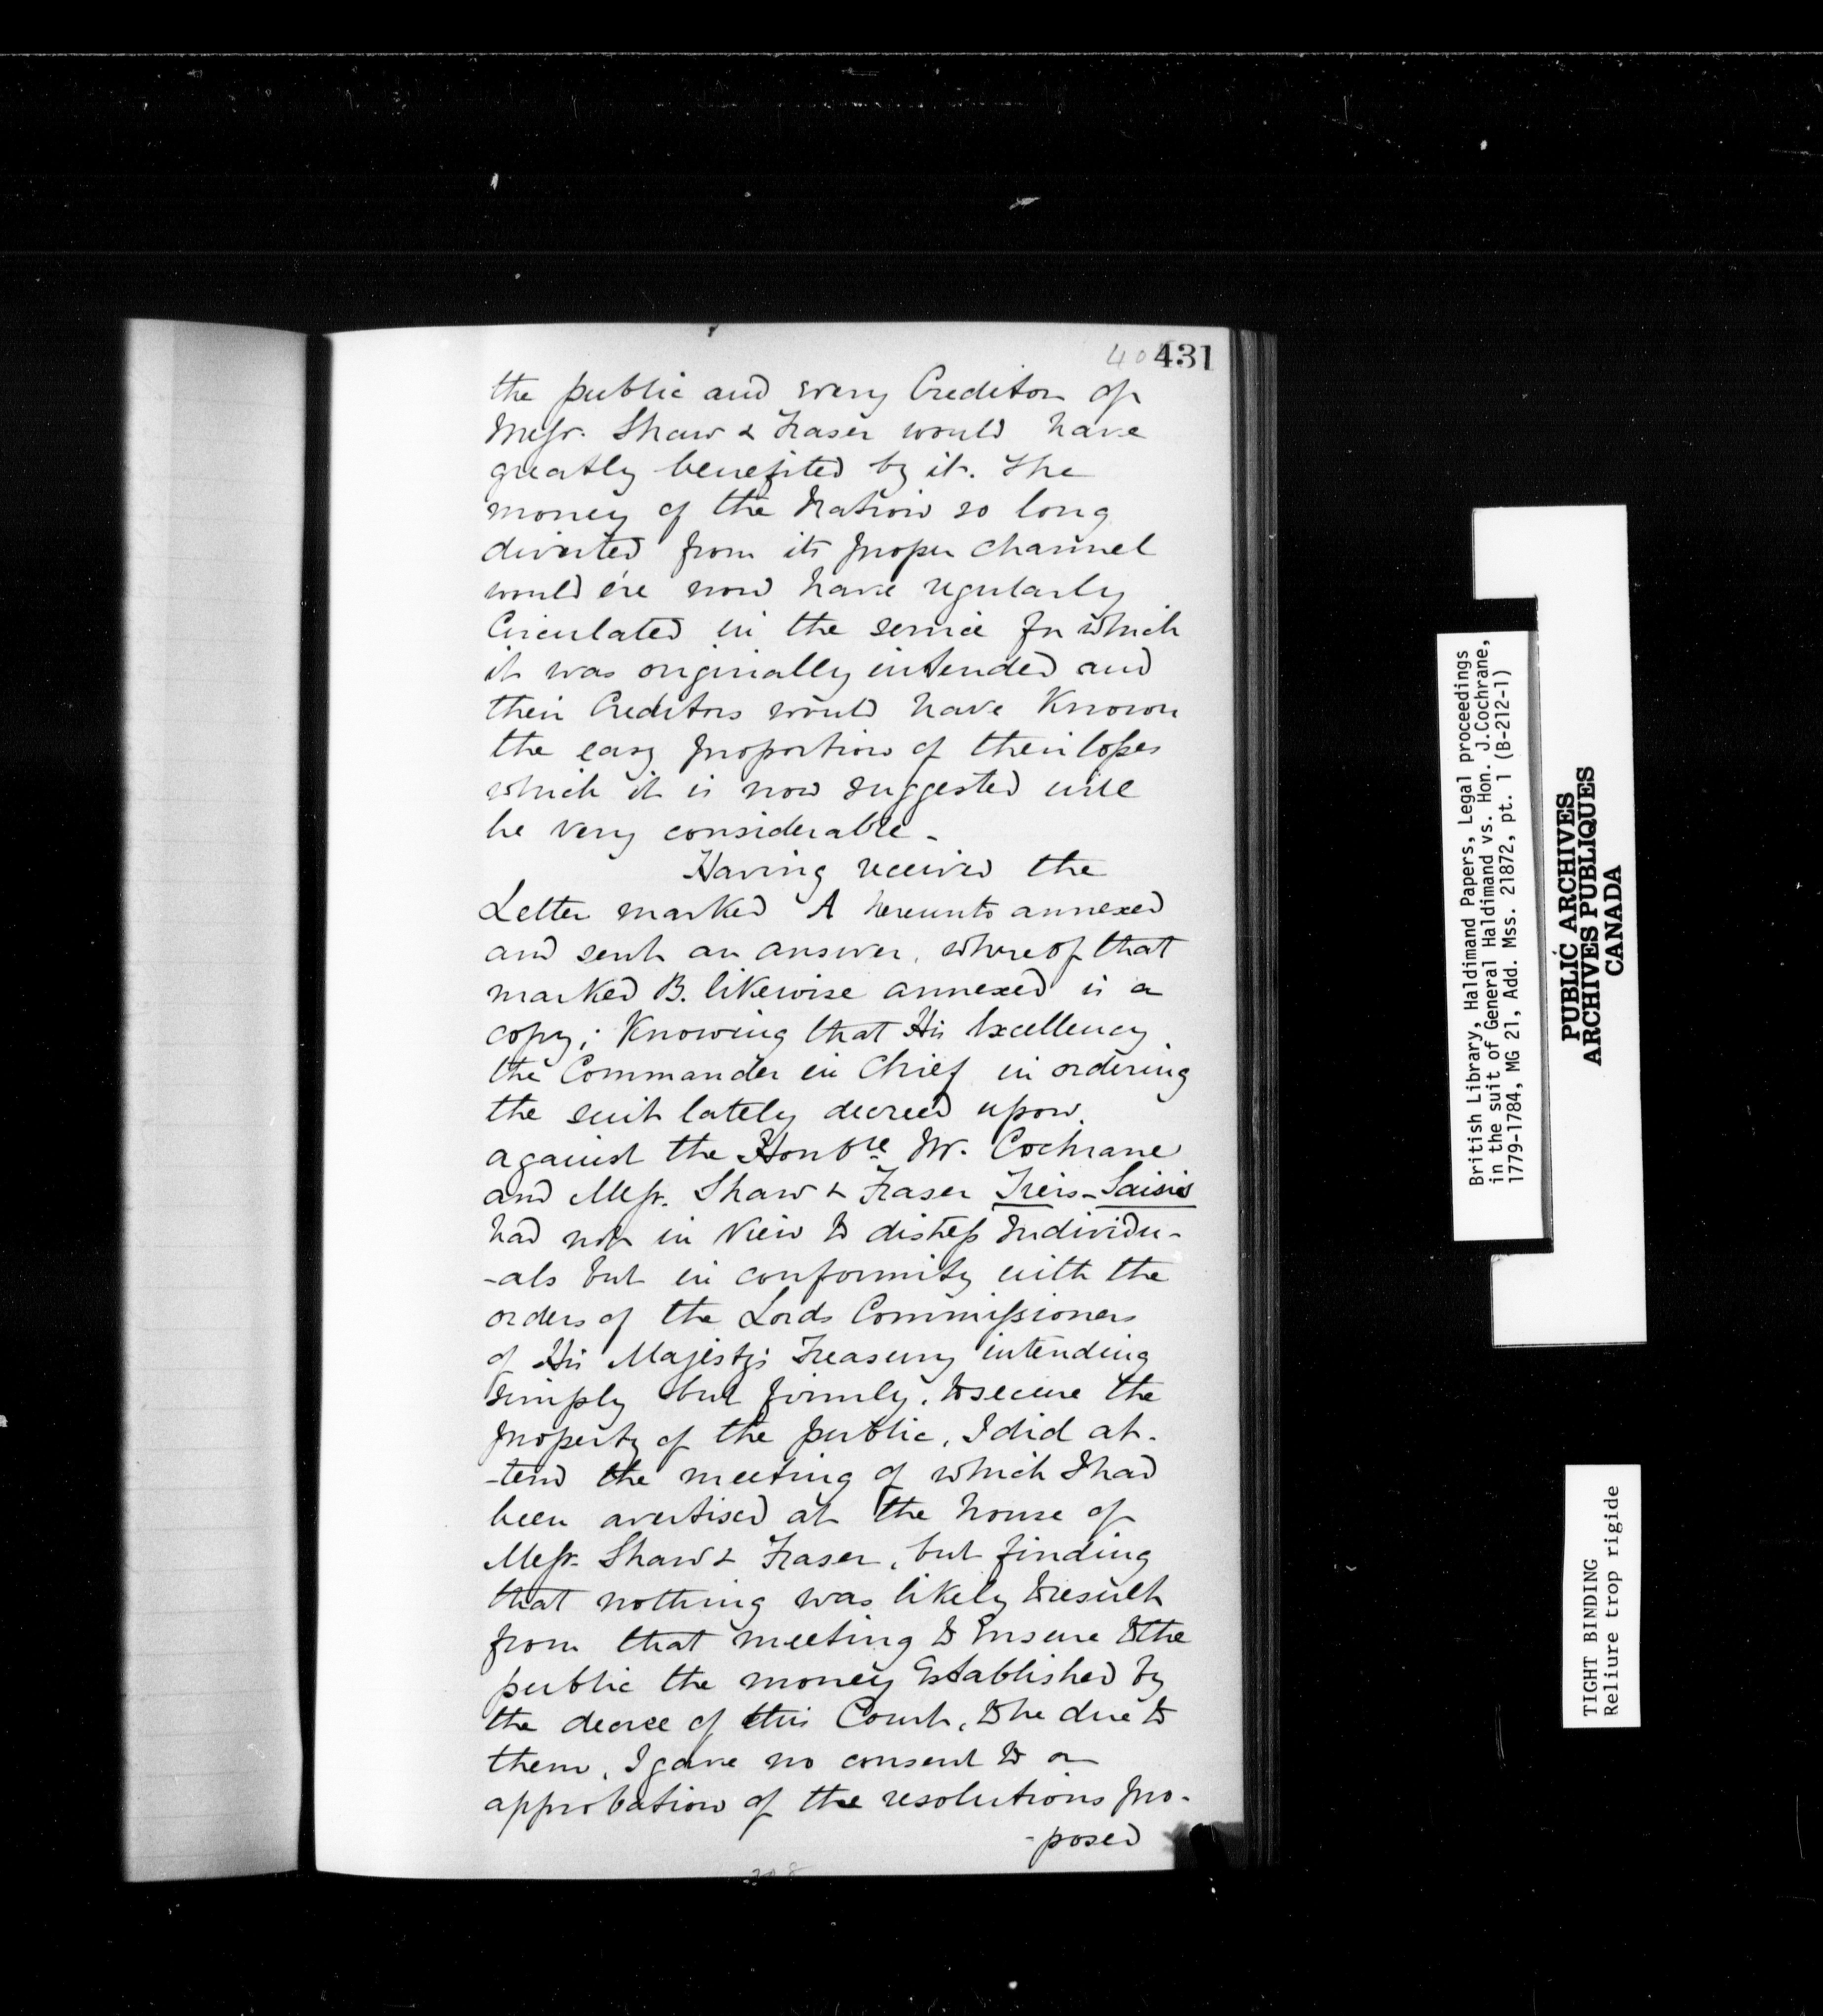 431
the public and every Creditor of
Messr. Shaw & Fraser would have
greatly benefited by it. The
money of the Nation so long
diverted from its proper channel
would e're now have regularly
Circulated in the service for which
it was originally intended and
their Creditors would have Known
the easy proportion of their losses
which it is now suggested will
be very considerable -
Having received the
Letter marked A hereunto annexed
and sent an answer, whereof that
marked B. likewise annexed is a
copy; Knowing that His Excellency
the Commander in Chief in ordering
the suit lately decreed upon
against the Honble Mr. Cochrane
and Messr. Shaw & Fraser Tiers-Saisis
had not in View to distress Individu-
-als but in conformity with the
orders of the Lords Commissioners
of His Majesty's Treasury intending
simply but firmly, to secure the
property of the public, I did at-
-tend the meeting of which I had
been avertised at the house of
Messr. Shaw & Fraser, but finding
that nothing was likely to result
from that meeting to Ensure to the
public the money Established by
the decree of this Court, to be due to
them, I gave no consent to or
approbation of the resolutions pro-
-posed
British Library, Haldimand Papers, Legal proceedings
in the suit of General Haldimand vs. Hon. J.Cochrane,
1779-1784, MG 21, Add. Mss. 21872, pt. 1 (B-212-1)
PUBLIC ARCHIVES
ARCHIVES PUBLIQUES
CANADA
TIGHT BINDING
Reliure trop rigide